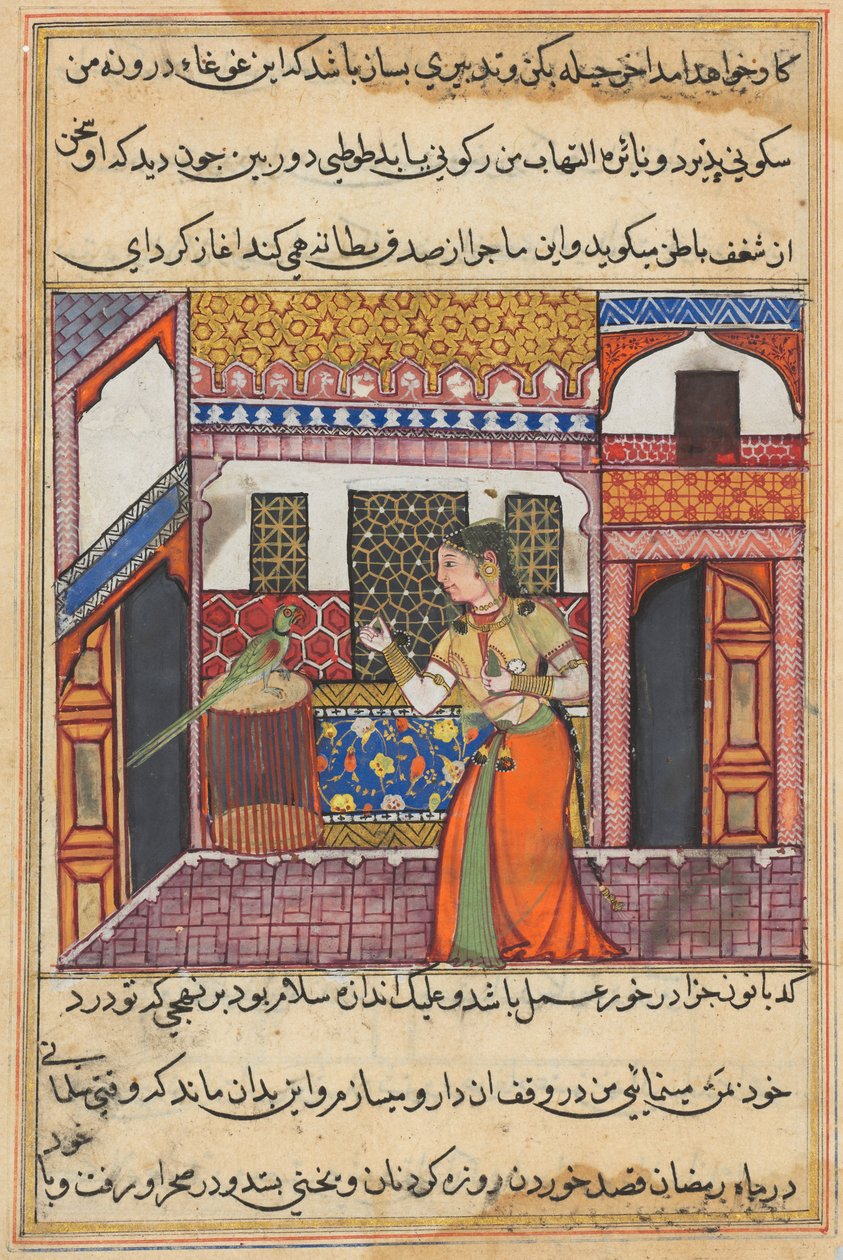 کا و خواهد امد اخر حیله بکن و تدبیری بساز باشد که این غوغاء درونه من
سکونی پذیرد و نایره التهاب من رکونی یابد طوطی دوربین جون دید که او سخن
از شغف باطن میکوید و این ماجرا از صدق بطانه همی کند اغاز کرد ای
کدبانو جزا در خور عمل باشد و علیک اندازه سلام بود بر نهجی که تو درد
خود بمن مینمائی من در وقف ان دارو میسازم و این بدان ماند که وقتی
در ماه رمضان قصد خوردن روزه کرد نان و یختی بستد و در صحرا و رفت و با
خود